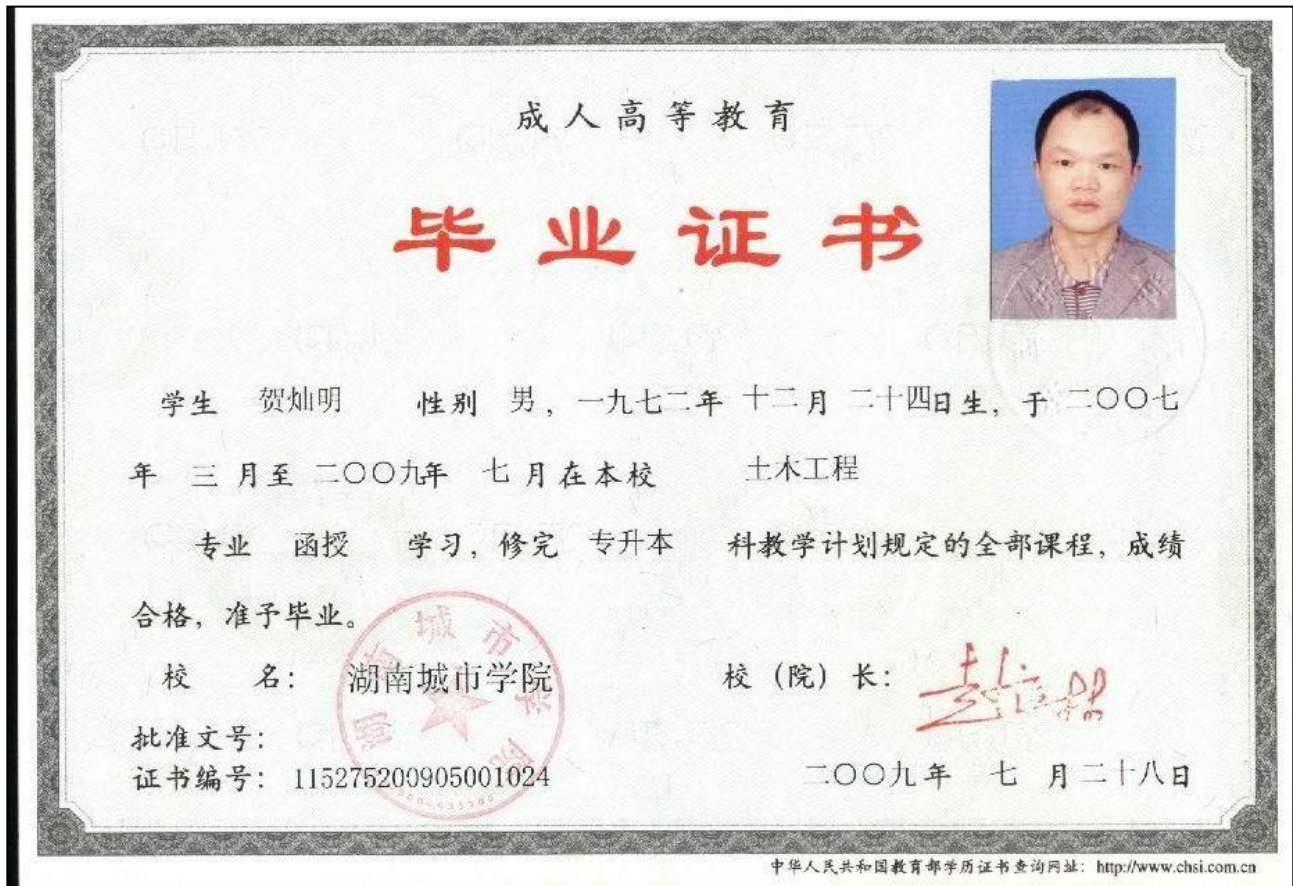 成人高等教育
毕业证书
学生 贺灿明 性别 男，一九七二年 十二月 二十四日生，于 二〇〇七
年 三 月至 二〇〇九年 七 月在本校 土木工程
专业 函授 学习，修完 专升本 科教学计划规定的全部课程，成绩
合格，准予毕业。
校 名： 湖南城市学院 校（院）长：
湖南城市学院
批准文号：
证书编号： 115275200905001024 二〇〇九年 七 月二十八日
中华人民共和国教育部学历证书查询网址： http://www.chsi.com.cn